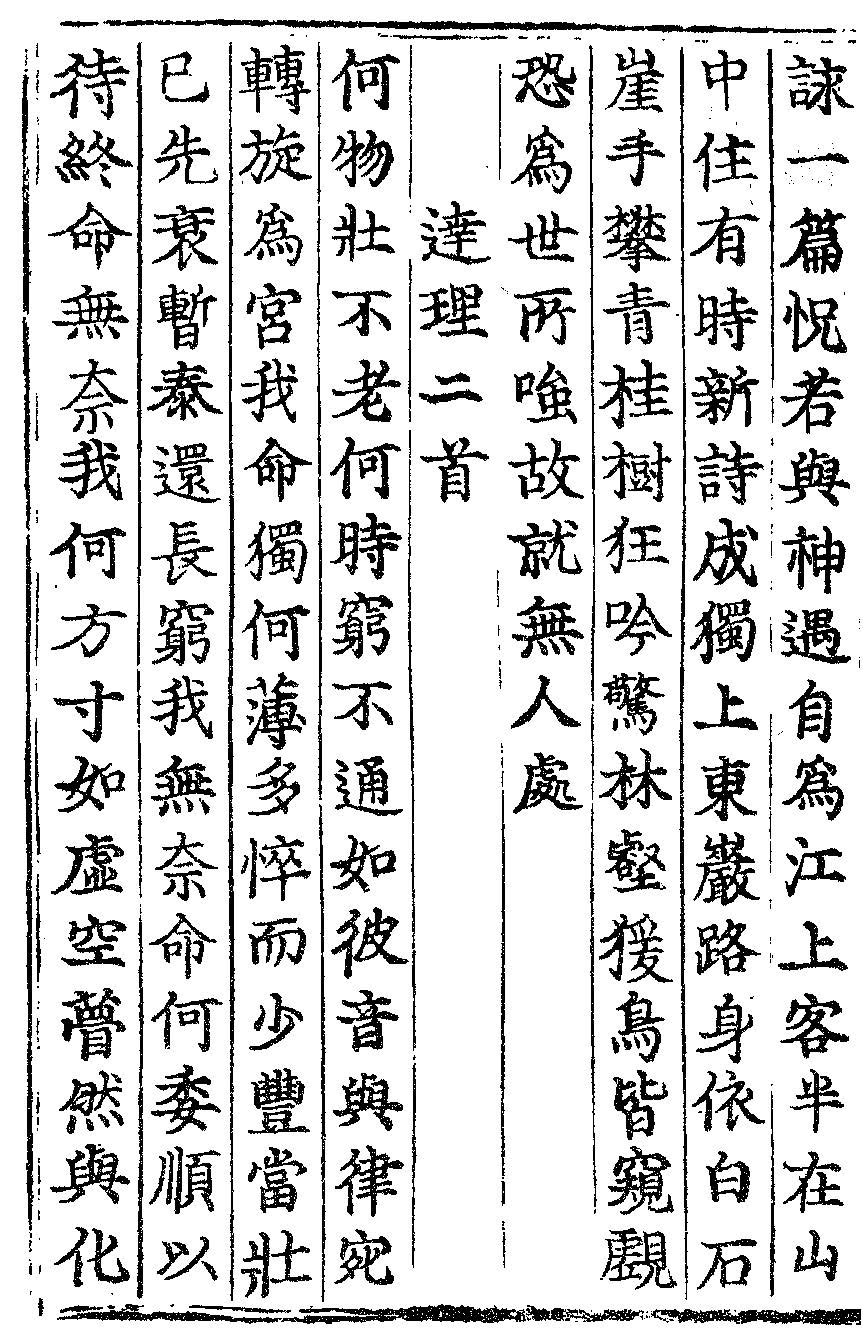 詠一篇怳若與神遇自爲江上客半在山
中住有時新詩成獨上東巖路身依白石
崖手攀青桂樹狂吟驚林壑猨鳥皆窺覷
恐爲世所嗤故就無人處
達理二首
何物壯不老何時窮不通如彼音與律宛
轉旋爲宮我命獨何薄多悴而少豐當壯
已先衰暫泰還長窮我無奈命何委順以
待終命無奈我何方寸如虛空瞢然與化